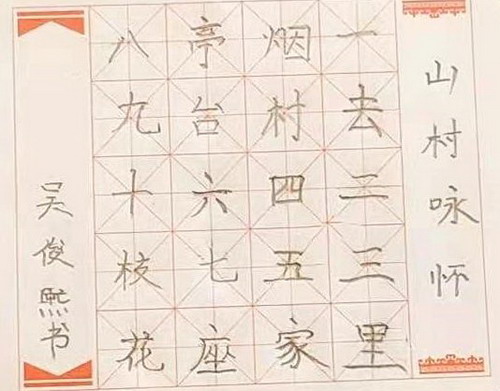 山村咏怀
一去二三里
烟村四五家
亭台六七座
八九十枝花
吴俊熙书